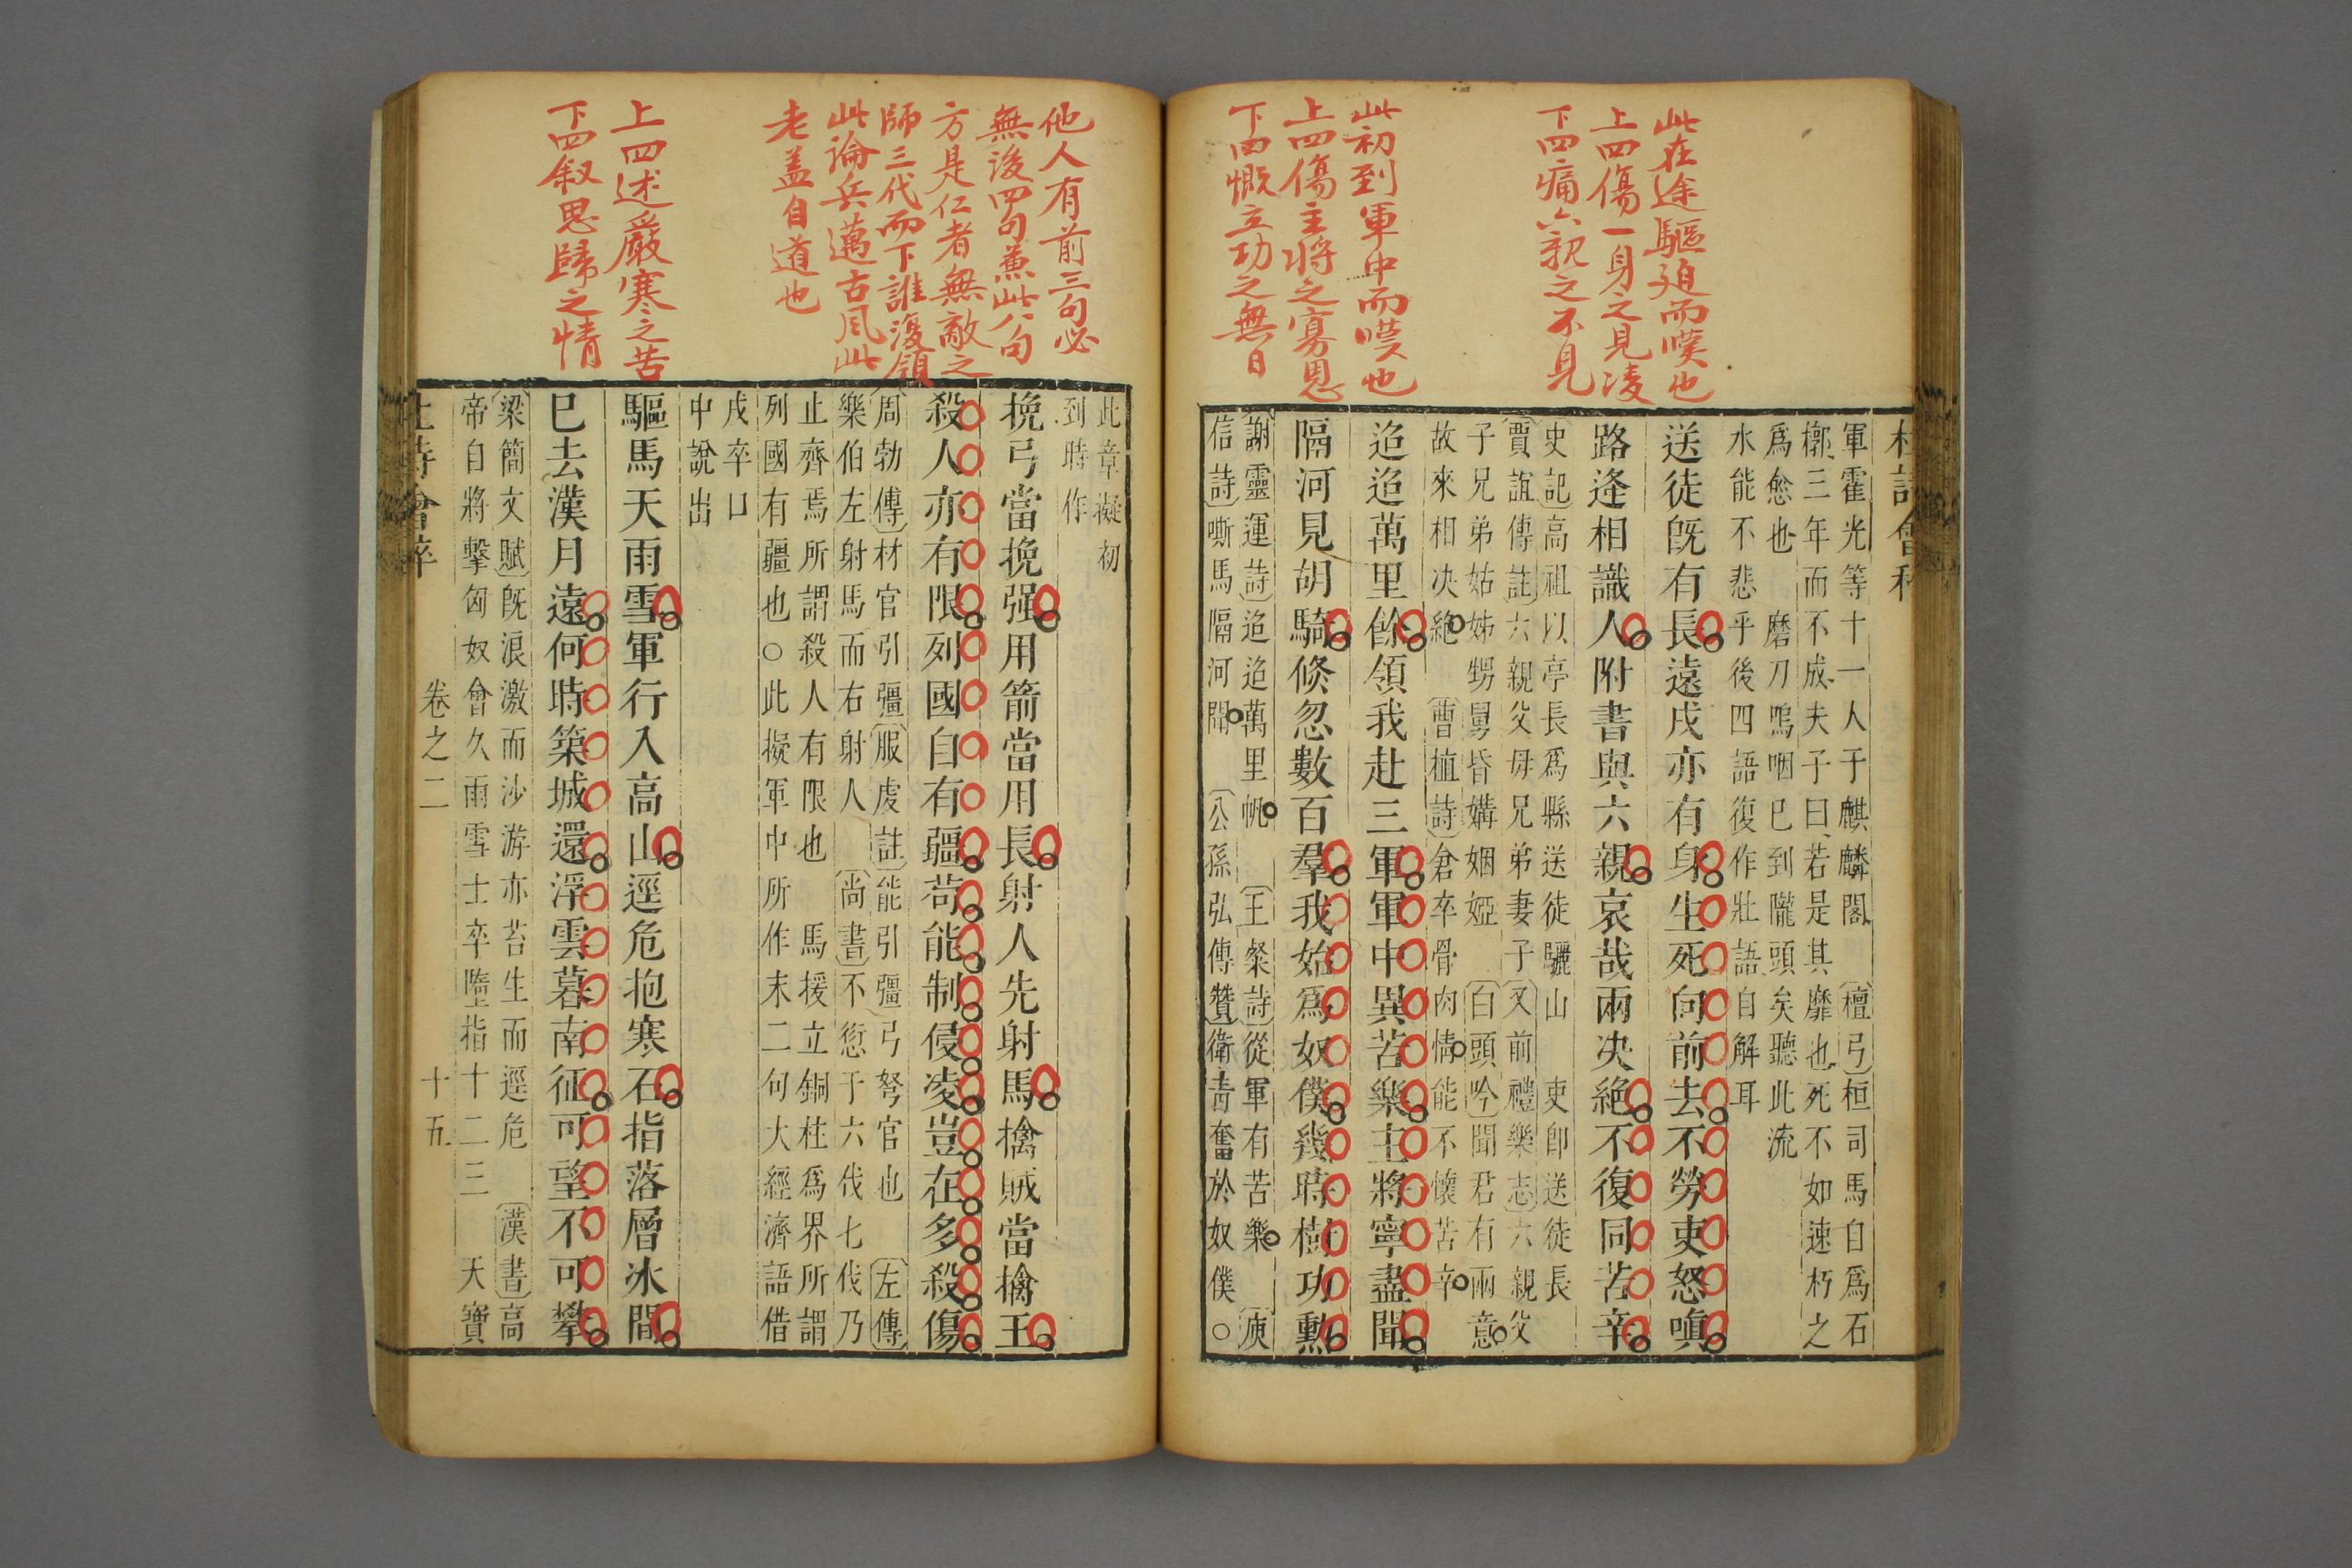 此在途驅廹而嘆也
上四傷一身之見凌
下四痛六親之不見
此初到軍中而嘆也
上四傷主將之寡恩
下四慨立功之無日
軍霍光等十一人于麒麟閣 檀弓桓司馬自爲石
槨三年而不成夫子曰若是其靡也死不如速朽之
爲愈也 磨刀嗚咽巳到隴頭矣聽此流
水能不悲乎後四語復作壯語自解耳
送徒旣有長遠戍亦有身生死向前去不勞吏怒嗔
路逢相識人附書與六親哀哉兩决絶不復同苦辛
史記高祖以亭長爲縣送徒驪山 吏卽送徒長
賈誼傳註六親父母兄弟妻子又前禮樂志六親父
子兄弟姑姊甥舅昏媾姻婭 白頭吟聞君有兩意
故來相决絶 曹植詩倉卒骨肉情能不懷苦辛
迢迢萬里餘領我赴三軍軍中異苦樂主將寧盡聞
隔河見胡騎倐忽數百羣我始爲奴僕幾時樹功勳
謝靈運詩迢迢萬里帆 王粲詩從軍有苦樂 庾
信詩嘶馬隔河聞 公孫弘傳贊衛靑奮於奴僕○
他人有前三句必
無後四句蕙此八句
方是仁者無敵之
師三代而下誰復領
此論兵邁古風此
老盖自道也
上四述嚴寒之苦
下四叙思歸之情
此章擬初
到時作
挽弓當挽强用箭當用長射人先射馬擒賊當擒王
殺人亦有限列國自有疆苟能制侵凌豈在多殺傷
周勃傳材官引彊服虔註能引彊弓弩官也 左傳
樂伯左射馬而右射人 尚書不愆于六伐七伐乃
止齊焉所謂殺人有限也 馬援立銅柱爲界所謂
列國有疆也○此擬軍中所作末二句大經濟語借
戍卒口
中說出
驅馬天雨雪軍行入高山逕危抱寒石指落層冰間
巳去漢月遠何時築城還浮雲暮南征可望不可攀
梁簡文賦旣浪激而沙游亦苔生而逕危 漢書高
帝自將擊匈奴會久雨雪士卒墮指十二三 天寶
卷之二 十五